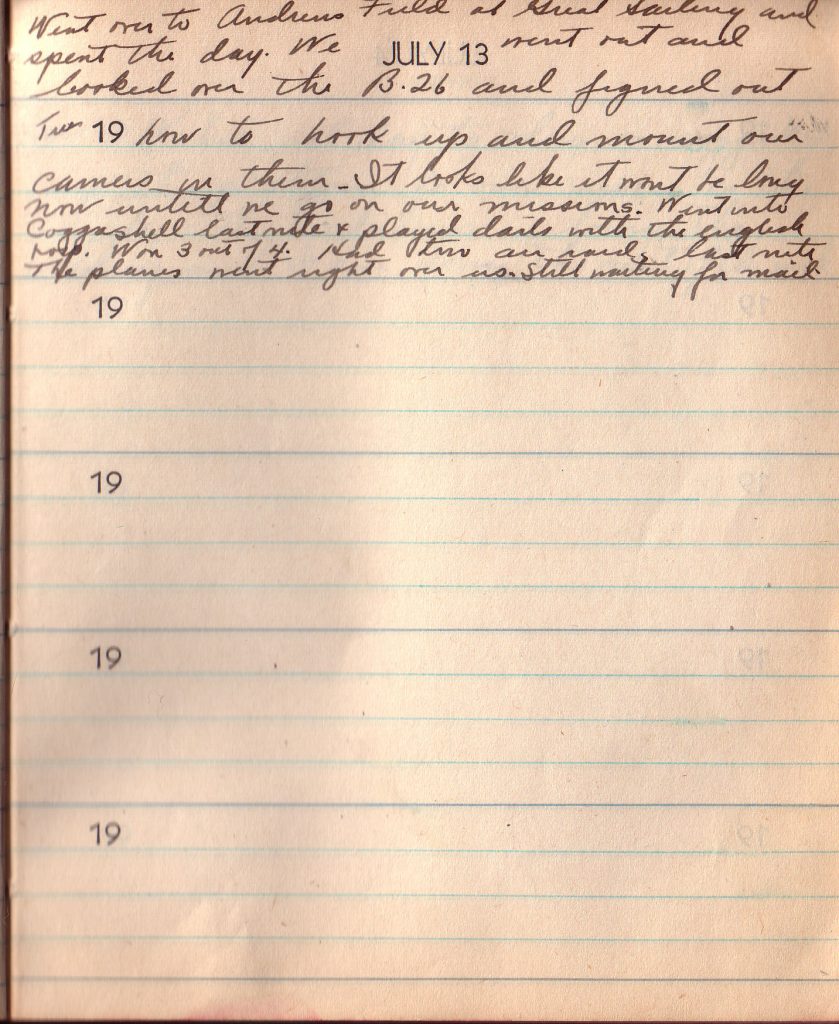 Went over to Andrews Field at Great Sailing and
spent the day. We JULY 13 went out and
looked over the B.26 and figued out
Tues 19 how to hook up and mount our
camers in them. It looks like it wont be long
now untill we go on our missions. Went into
Coggashell last nite & played darts with the english
Won 3 out of 4. Had two air raids last nite
The planes went right over us. Still waiting for mail.
19
19
19
19